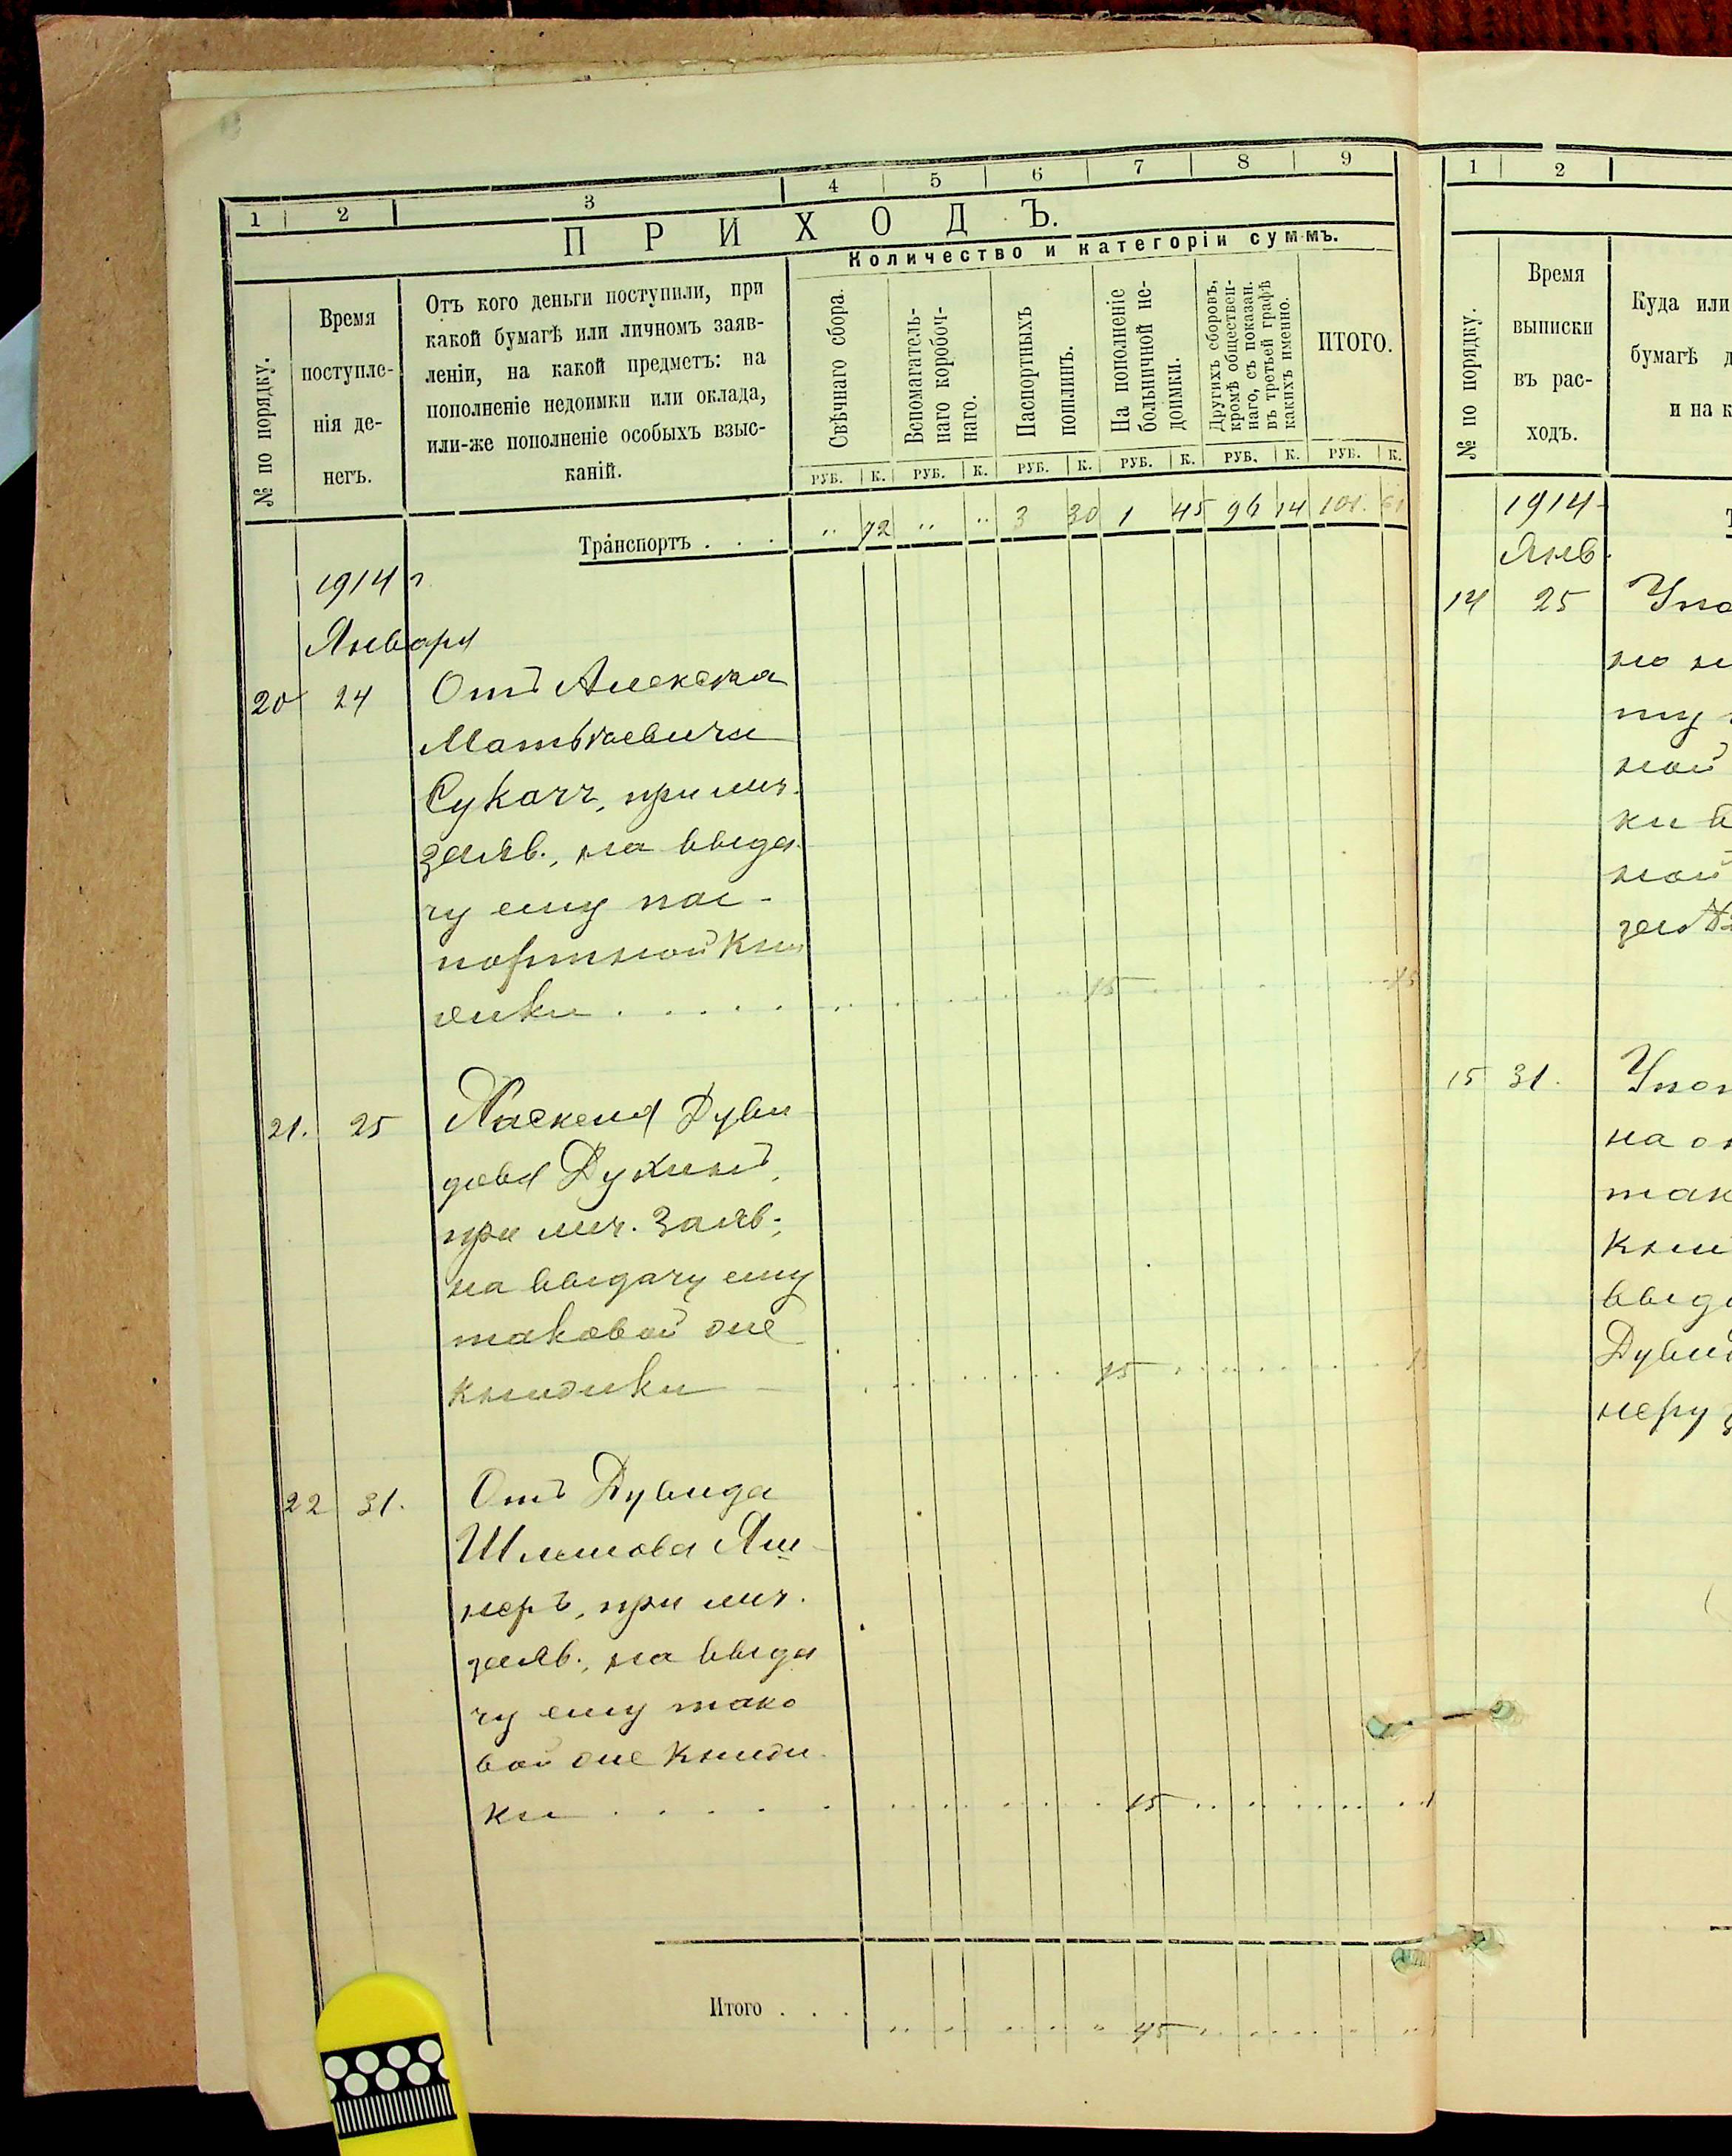 1 2 3 4 5 6 7 8 9
ПРИХОДЪ.
Количество и категоріи суммъ.
№ по порядку.
Время
поступле-
нія де-
негъ.
Отъ кого деньги поступили, при
какой бумагѣ или личномъ заяв-
леніи, на какой предметъ: на
пополненіе недоимки или оклада,
или-же пополненіе особыхъ взыс-
каній.
Свѣчнаго сбора.
Вспомагатель-
наго коробоч-
наго.
Паспортныхъ
пошлинъ.
На пополненіе
больничной не-
доимки.
Другихъ сборовъ,
кромѣ обществен-
наго, съ показан.
въ третьей графѣ
какихъ именно.
ИТОГО.
РУБ. К. РУБ. К. РУБ. К. РУБ. К. РУБ. К. РУБ. К.
Транспортъ . . . " 72 " " 3 30 1 45 96 14 101. 61
1914 г
Января
20 24 Отъ Алексѣя
Матвѣевича
Сукачъ, при лич.
заяв., на выда-
чу ему пас-
портной кни
жки . . . . . 15 15
21. 25 Хаскеля Дуви
дова Духинъ,
при лич. заяв.,
на выдачу ему
таковой же
книжки 15
22 31. Отъ Дувида
Шлиомова Яш
неръ, при лич.
заяв., на выда
чу ему тако
вой же книж
ки . . . . . 15
Итого . . . 45
1 2
№ по порядку.
Время
выписки
въ рас-
ходъ.
Куда или
бумагѣ
и на к
1914
Янв.
14 25
но
ту
ной
ки в
ной
15 31.
на
так
кни
выд
Дуви
неру